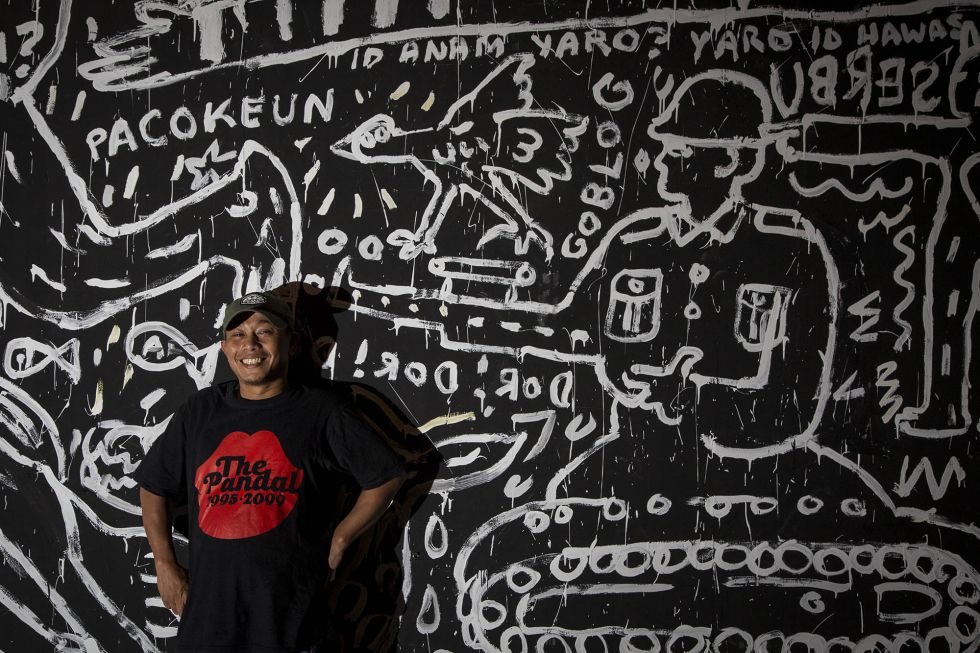 ID ANAM YARO? YARO ID HAWAS
SERBU
PACOKEUN
GOBLO
DOR! DOR!
The
Pandal
1995-2099